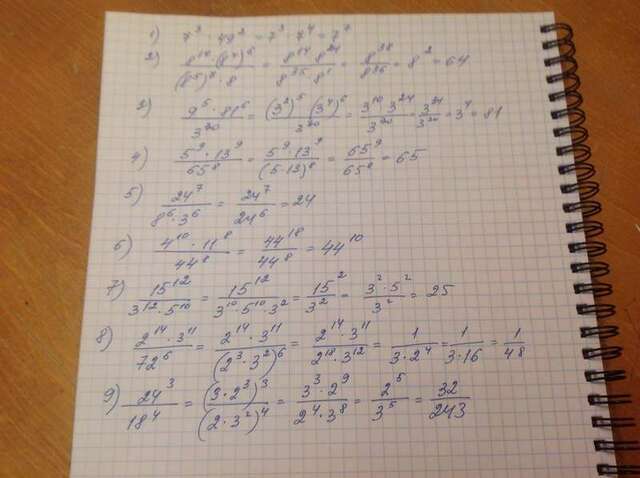 1) 7³ · 49² = 7³ · 7⁴ = 7⁷
2) 8¹⁴ · (8⁴)⁶ / (8⁵)⁷ · 8 = 8¹⁴ · 8²⁴ / 8³⁵ · 8¹ = 8³⁸ / 8³⁶ = 8² = 64
3) 9⁵ · 81⁶ / 3³⁰ = (3²)⁵ (3⁴)⁶ / 3³⁰ = 3¹⁰ · 3²⁴ / 3³⁰ = 3³⁴ / 3³⁰ = 3⁴ = 81
4) 5⁹ · 13⁹ / 65⁸ = 5⁹ · 13⁹ / (5·13)⁸ = 65⁹ / 65⁸ = 65
5) 24⁷ / 8⁶ · 3⁶ = 24⁷ / 24⁶ = 24
6) 4¹⁰ · 11⁸ / 44⁸ = 44¹⁸ / 44⁸ = 44¹⁰
7) 15¹² / 3¹² · 5¹⁰ = 15¹² / 3¹⁰ · 5¹⁰ · 3² = 15² / 3² = 3² · 5² / 3² = 25
8) 2¹⁴ · 3¹¹ / 72⁶ = 2¹⁴ · 3¹¹ / (2³ · 3²)⁶ = 2¹⁴ · 3¹¹ / 2¹⁸ · 3¹² = 1 / 3 · 2⁴ = 1 / 3 · 16 = 1 / 48
9) 24³ / 18⁴ = (3 · 2³)³ / (2 · 3²)⁴ = 3³ · 2⁹ / 2⁴ · 3⁸ = 2⁵ / 3⁵ = 32 / 243